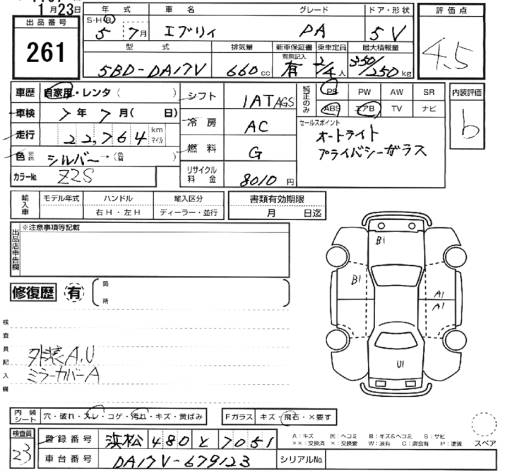 1月23日
出品番号 261
年式 車名 グレード ドア・形状
S・H・R 5年 7月 エブリィ PA 5V
型式 排気量 新車保証書 乗車定員 最大積載量
5BD-DA17V 660cc 有 2/4人 350/250kg
評価点 4.5
車歴 自家用・レンタ( )
車検 7年7月( )
走行 22,764 km マイル
色 シルバー
カラーNo. Z2S
シフト IAT AGS
冷房 AC
燃料 G
リサイクル料金 8010円
純正のみ PS PW AW SR
ABS エアB TV ナビ
セールスポイント
オートライト
プライバシーガラス
内装評価 b
輸入車 モデル年式 ハンドル 輸入区分
右H・左H ディーラー・並行
書類有効期限
月 日迄
出品店申告欄 ※注意事項等記載
修復歴 有 箇所
検査員記入欄
外装A,U
ミラーカバーA
B1
B1
A1
A1
U1
内装シート 穴・破れ・スレ・コゲ・汚れ・キズ・黄ばみ
Fガラス キズ・飛石・×要す
スペア
検査員 23
登録番号 浜松480と7051
車台番号 DA17V-679123
シリアルNo.